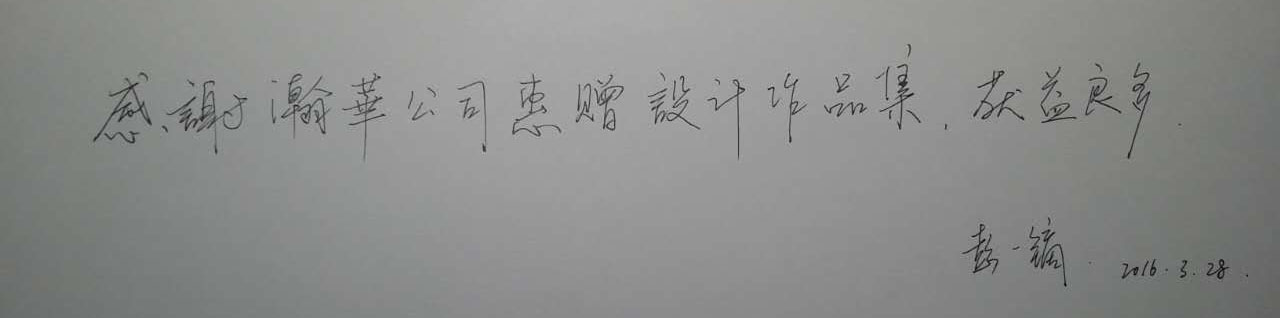 感謝瀚華公司惠赠設计作品集,获益良多.
彭一鏑. 2016.3.28.